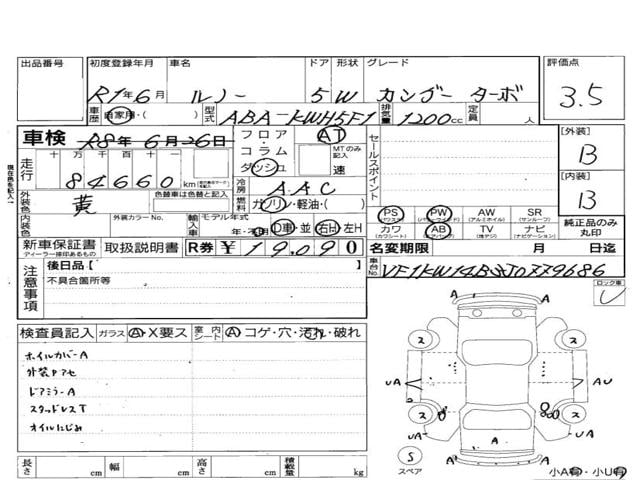 出品番号 初度登録年月 車名 ドア 形状 グレード 評価点
R1年6月 ルノー 5 W カングー ターボ 3.5
車歴 自家用・( ) 型式 ABA-KWH5F1 排気量 1200cc 定員 人
車検 R8年 6月26日 フロア コラム ダッシュ AT MTのみ記入 速 セールスポイント [外装] B
走行 十万千百十一 84660 km
冷房 AAC [内装] B
外装色 黄 色替車は色替と記入 燃料 ガソリン・軽油・( )
PS (パワステ) PW (パワーウインド) AW (アルミホイル) SR (サンルーフ) 純正品のみ丸印
内装色 外装カラーNo. 輸入車 モデル年式 年・不明 D車・並 右H 左H カワ (カワシート) AB (エアバック) TV (地デジ) ナビ (ナビゲーション)
新車保証書 ディーラー捺印あるもの 取扱説明書 R券 ¥19,090 名変期限 月 日迄
注意事項 後日品【 】 車台No.
不具合箇所等 ロック車
検査員記入 ガラス A・X要ス 室内シート A コゲ・穴・汚れ・破れ
ホイルカバーA
外装Pアセ
ドアミラーA
スタッドレスT
オイルにじみ
現在色を記入
A A
2 2
UA A AU
2 2
UA A UA
S スペア
A A
長さ cm 幅 cm 高さ cm 積載量 kg 小A有・小U有